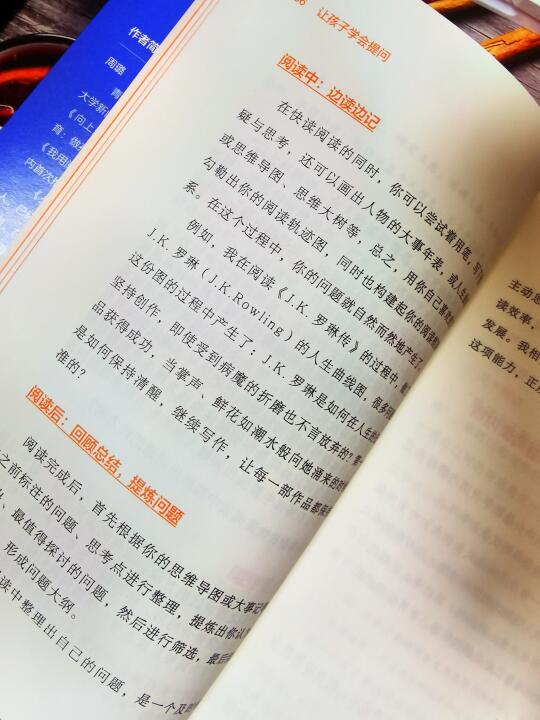 作者简
周璐
青
大学新
《向上
育：做
《我用
内首次
6 让孩子学会提问
阅读中：边读边记
在快读阅读的同时，你可以尝试着用笔，写
疑与思考，还可以画出人物的大事年表，或人生
或思维导图、思维大树等，总之，用你自己
勾勒出你的阅读轨迹图，同时也构建起你的阅读
系。在这个过程中，你的问题就自然而然地产生
例如，我在阅读《J.K. 罗琳传》的过程中，
J.K. 罗琳（J.K.Rowling）的人生曲线图，很多
这份图的过程中产生了：J.K. 罗琳是如何在人生
坚持创作，即使受到病魔的折磨也不言放弃的？
品获得成功，当掌声、鲜花如潮水般向她涌来的
是如何保持清醒，继续写作，让每一部作品都
准的？
阅读后：回顾总结，提炼问题
阅读完成后，首先根据你的思维导图或大事记
之前标注的问题、思考点进行整理，提炼出你认
、最值得探讨的问题，然后进行筛选，最后
形成问题大纲。
读中整理出自己的问题，是一个及
主动思
读效率，
发展。我相
这项能力，正